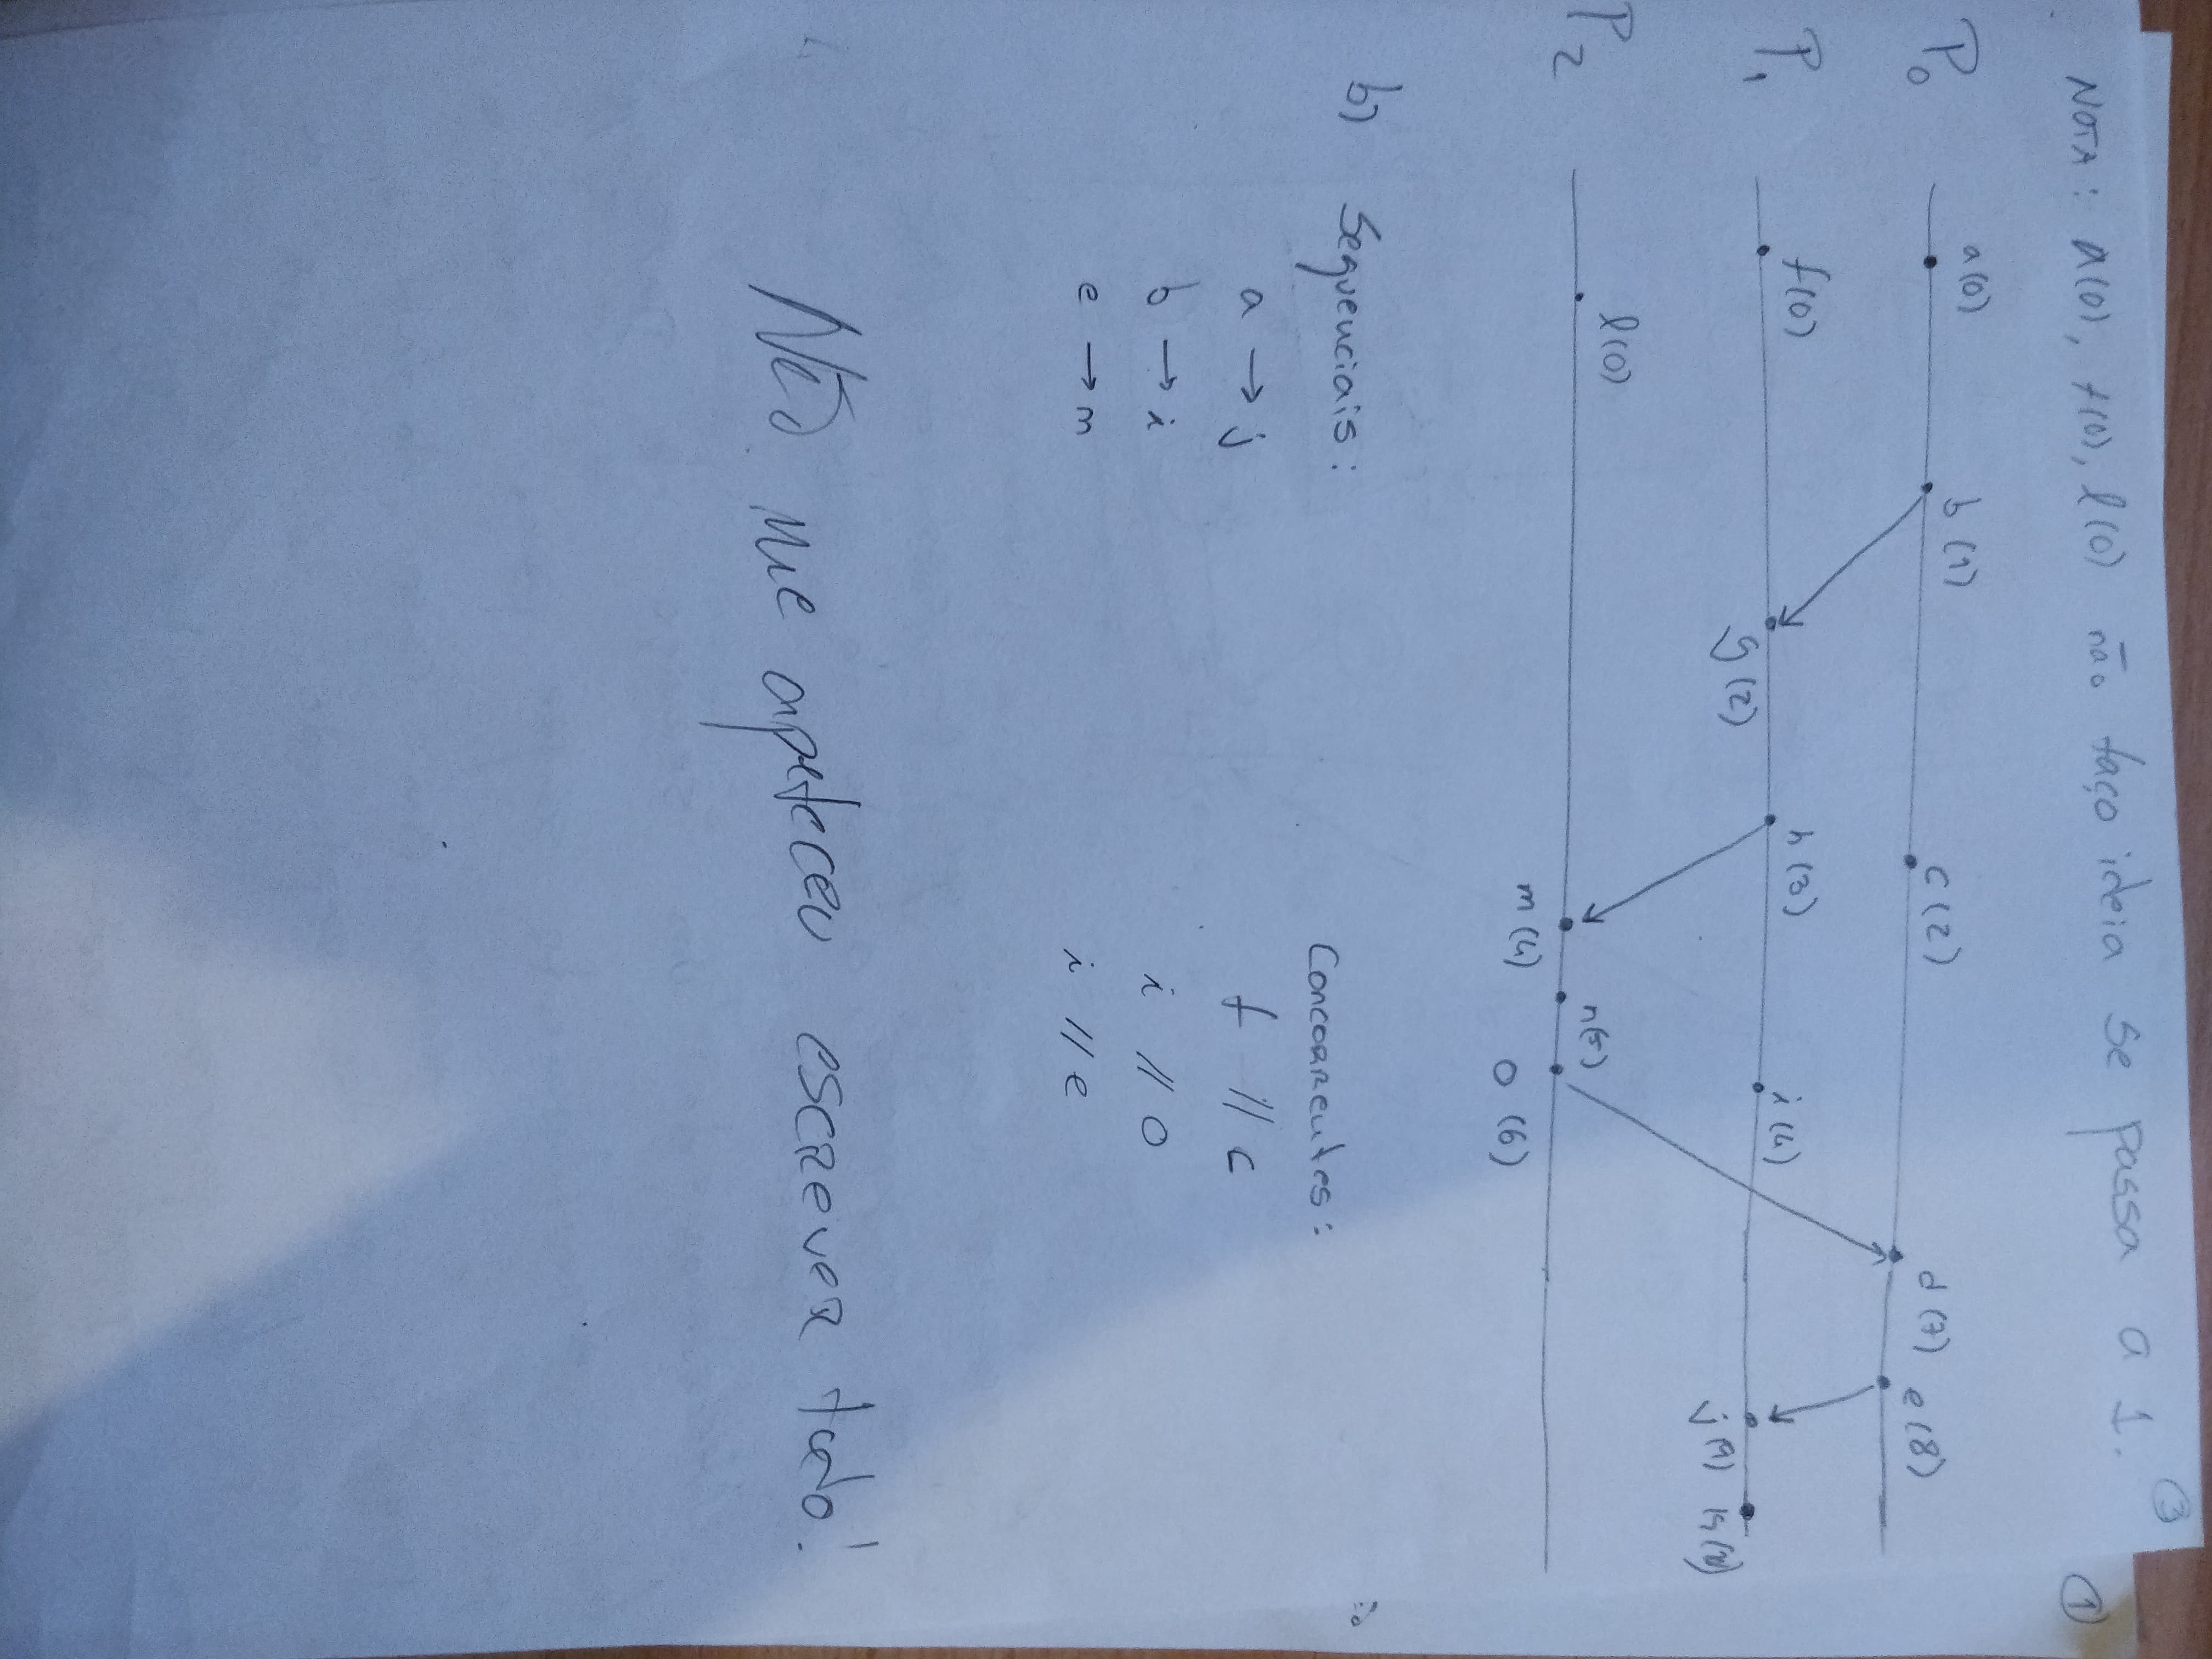 ③
NOTA: a(0), f(0), l(0) não faço ideia se passa a 1.
①
P0 a(0) b(1) c(2) d(7) e(8)
P1 f(0) g(2) h(3) i(4) j(9)
P2 l(0) m(4) n(5) o(6)
b) Sequenciais: Concorrentes:
a → j f // c
b → i i // o
e → m i // e
Não me apeteceu escrever tudo!